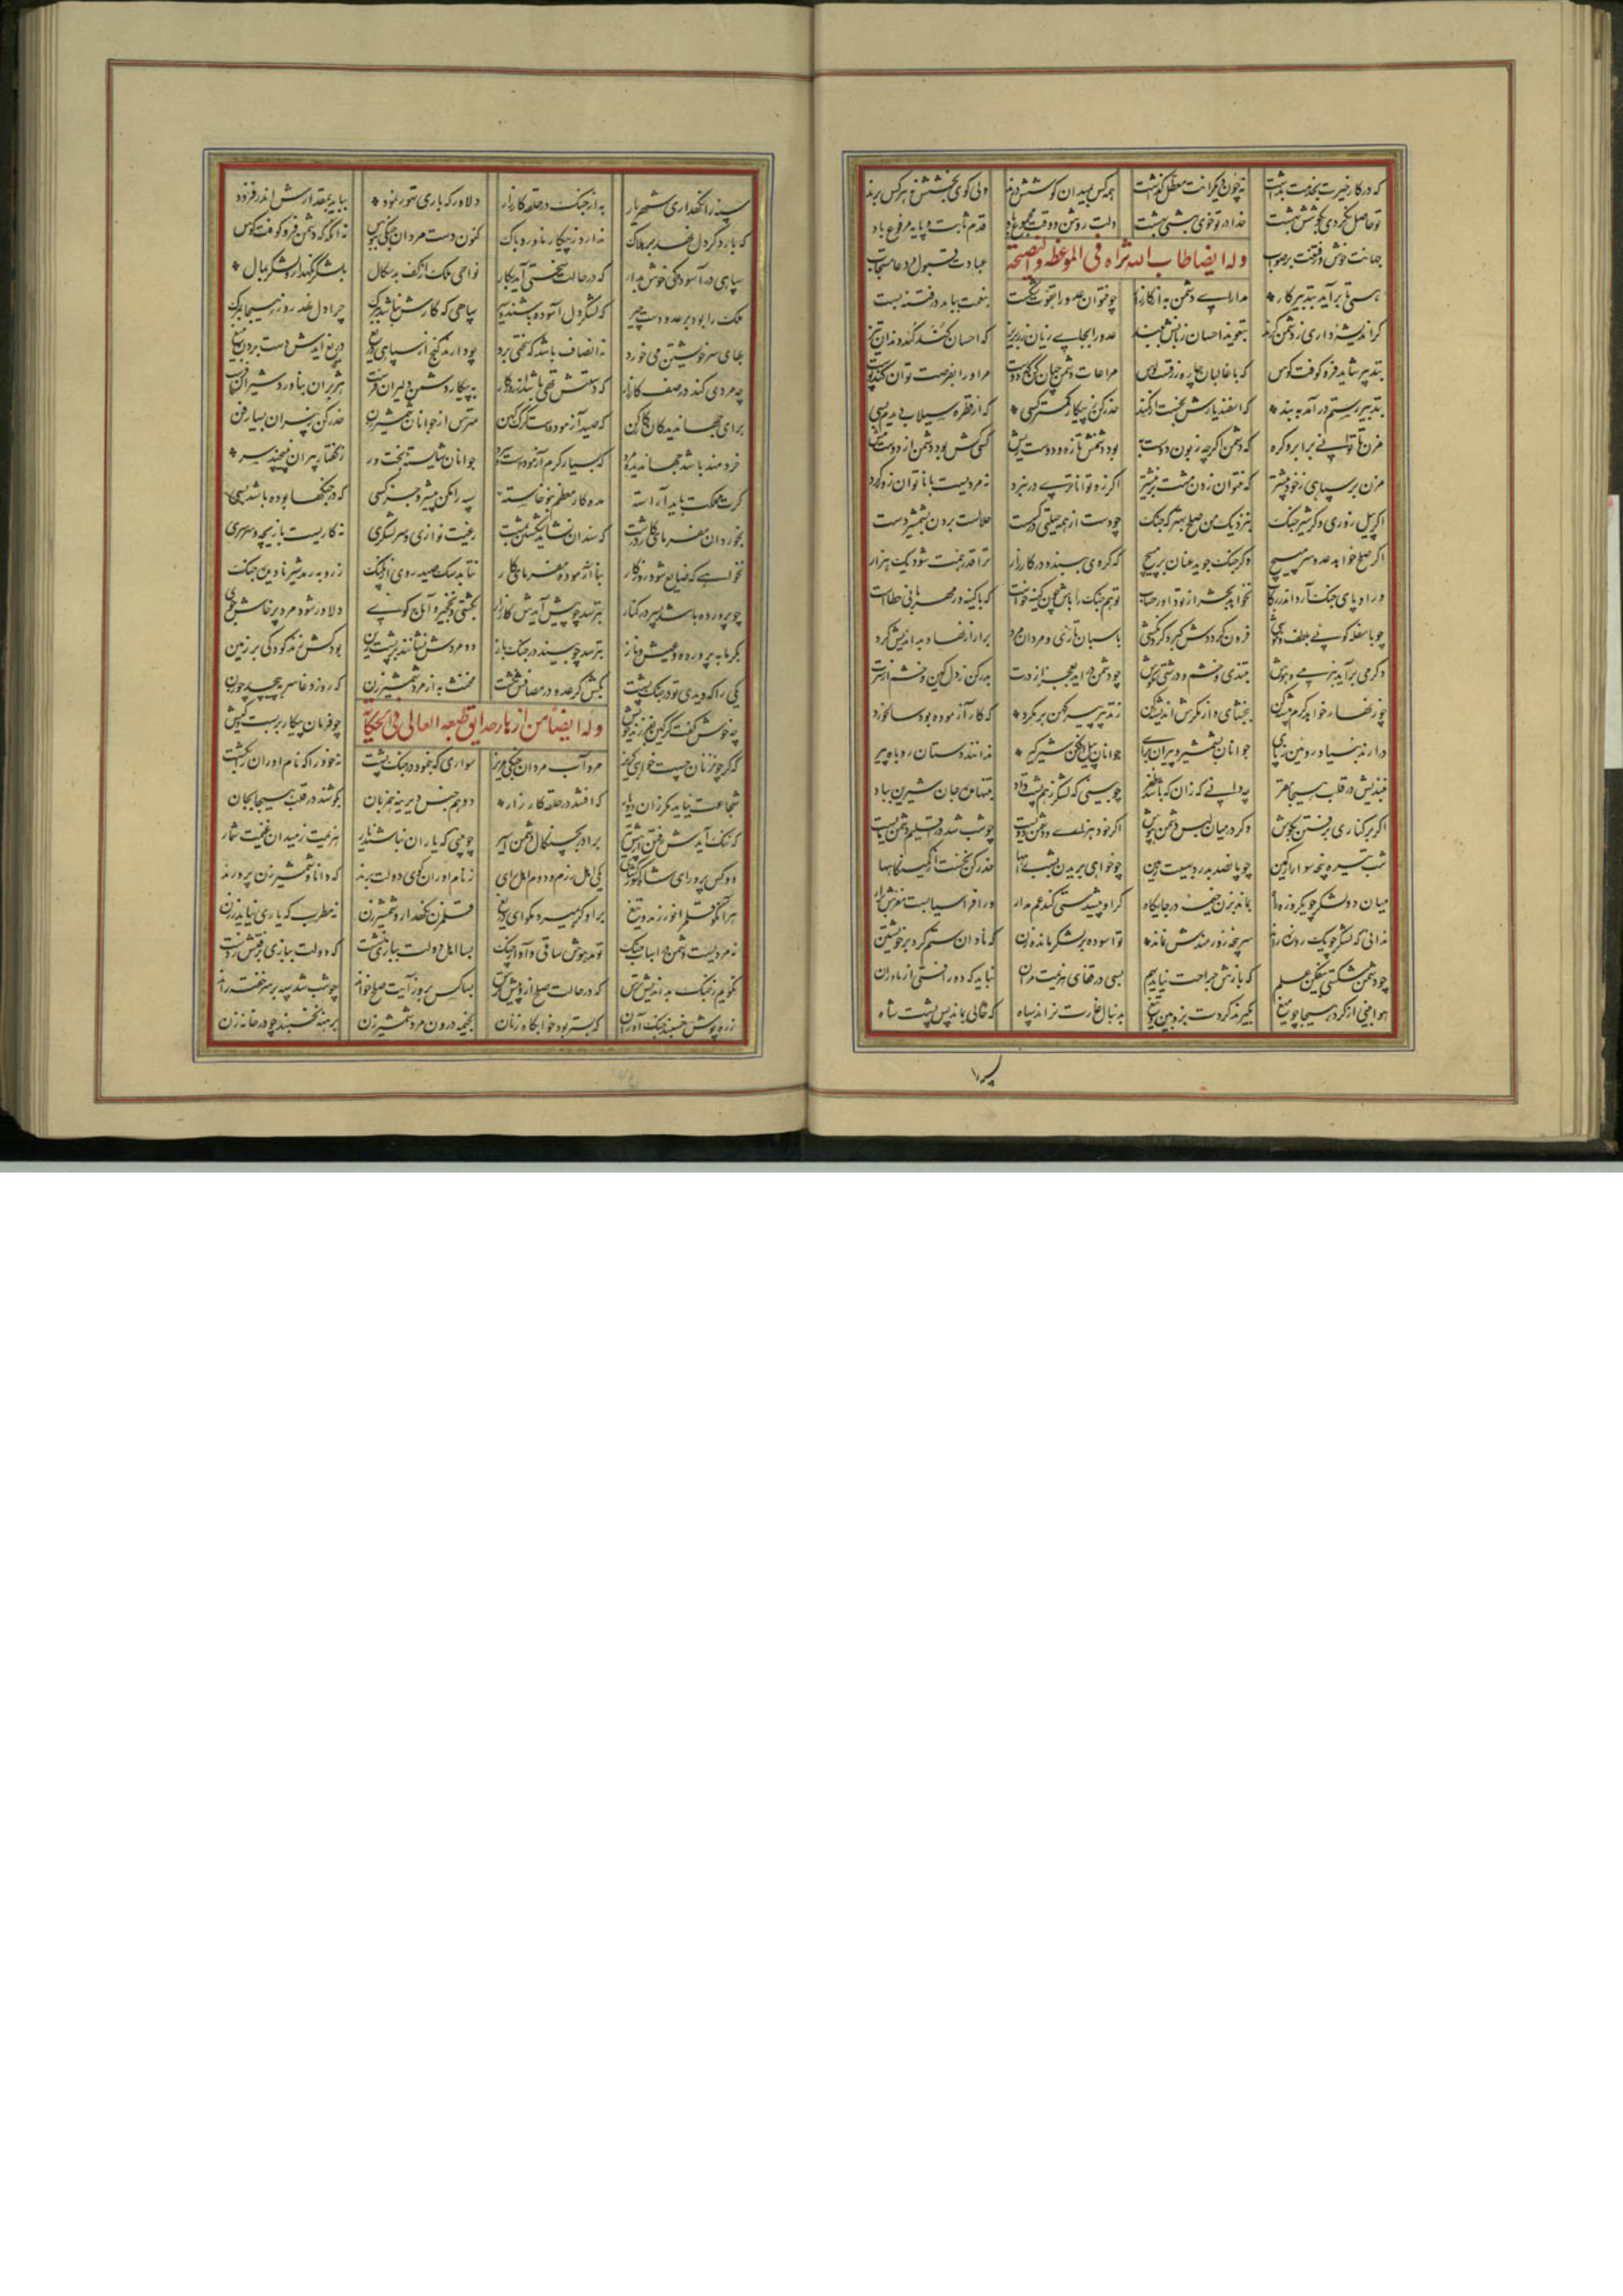 که در کار خیرت بخدمت بداشت نه چون دیگرانت معطل گذاشت همه کس بمیدان کوشش درند ولی گوی بخشش نه هر کس برند
تو حاصل نکردی بکوشش بهشت خدا در تو خوی بهشتی بهشت دلت روشن و وقت مجموع باد قدم ثابت و پایه مرفوع باد
حیاتت خوش و رفتنت بر صواب عبادت قبول و دعا مستجاب
وله ایضا طاب الله ثراه فی الموعظه والنصیحه
همی تا برآید بتدبیر کار مدارای دشمن به از کارزار چو نتوان عدو را بقوت شکست بنعمت بباید در فتنه بست
گر اندیشه داری ز دشمن گزند بتعویذ احسان زبانش ببند عدو را بجای زیان زر بریز که احسان کند کند دندان تیز
بتدبیر شاید فرو کوفت کوس که با غالبان چاره زرقست و لوس مراعات دشمن چنان کن که دوست مر او را بفرصت توان کند پوست
بتدبیر رستم درآمد به بند که اسفندیارش نجست از کمند حذر کن ز پیکار کمتر کسی که از قطره سیلاب دیدم بسی
مزن تا توانی بر ابرو گره که دشمن اگر چه زبون دوست به بود دشمنش تازه و دوست ریش کسی کش بود دشمن از دوست بیش
مزن بر سپاهی ز خود بیشتر که نتوان زدن مشت بر نیشتر اگر زو تواناتری در نبرد نه مردیست با ناتوان زور کرد
اگر پیل زوری و گر شیر چنگ بنزدیک من صلح بهتر که جنگ چو دست از همه حیلتی در گسست حلالست بردن بشمشیر دست
اگر صلح خواهد عدو سر مپیچ وگر جنگ جوید عنان بر مپیچ که گر وی ببندد در کارزار ترا قدر و هیبت شود یک هزار
ور او پای جنگ آرد اندر رکاب نخواهد بحشر از تو داور حساب تو هم جنگ را باش چون کینه خواست که با کینه ور مهربانی خطاست
چو با سفله گوئی بلطف و خوشی فزون گرددش کبر و گردنکشی باسبان تازی و مردان مرد برآر از نهاد بداندیش گرد
وگر می برآید بنرمی و هوش بتندی و خشم و درشتی مکوش چو دشمن درآید بعجز از درت بدر کن ز دل کین و خشم از سرت
چو زنهار خواهد کرم پیشه کن ببخشای و از مکرش اندیشه کن ز تدبیر پیر کهن بر مگرد که کار آزموده بود سالخورد
درآرند بنیاد رویین ز پای جوانان بشمشیر و پیران برای جوانان پیل افکن شیر گیر ندانند دستان روباه پیر
بیندیش در قلب هیجا مفر چه دانی که زان که باشد ظفر چو بینی که لشکر ز هم پشت داد بتنها مده جان شیرین بباد
اگر بر کناری برفتن بکوش وگر در میان لبس دشمن بپوش اگر خود هزاری و دشمن دویست چو شب شد در اقلیم دشمن مایست
شب تیره پنجه سوار از کمین چو پانصد بدرد بهیبت زمین چو خواهی بریدن بشب راهها حذر کن نخست از کمینگاهها
میان دو لشکر چو یکروزه راه بماند بزن خیمه در جایگاه گر او پیشدستی کند غم مدار ور افراسیابست مغزش برآر
ندانی که لشکر چو یک روزه راند سر پنجه زورمندش نماند تو آسوده بر لشکر مانده زن که نادان ستم کرد بر خویشتن
چو دشمن شکستی بیفکن علم که بازش نیاید جراحت بهم بسی در قفای هزیمت مران نباید که دور افتی از یاوران
هوا بینی از گرد هیجا چو میغ بگیرند گردت بزوبین و تیغ بدنبال غارت نراند سپاه که خالی بماند پس پشت شاه
سپه را
سپه را نگهداری شهریار به از جنگ در حلقه کارزار دلاور که باری تهور نمود بباید بمقدارش اندر فزود
که بار دگر دل نهد بر هلاک ندارد ز پیکار یاجوج باک کنون دست مردان جنگی ببوس نه آنگه که دشمن فرو کوفت کوس
سپاهی در آسودگی خوش بدار که در حالت سختی آید بکار نواحی ملک از کف بدسگال بلشکر نگهدار و لشکر بمال
ملک را بود بر عدو دست چیر که لشکر دل آسوده باشند و سیر سپاهی که کارش نباشد ببرگ چرا دل نهد روز هیجا بمرگ
بهای سر خویشتن می خورد نه انصاف باشد که سختی برد چو دارند گنج از سپاهی دریغ دریغ آیدش دست بردن بتیغ
چه مردی کند در صف کارزار که دستش تهی باشد از روزگار به پیکار دشمن دلیران فرست هژبران بناورد شیران فرست
برای جهاندیدگان کار کن که صید آزمودست گرگ کهن مترس از جوانان شمشیر زن حذر کن ز پیران بسیار فن
خردمند باشد جهاندیده مرد که بسیار گرم آزمودست و سرد جوانان شایسته بخت ور ز گفتار پیران نپیچند سر
گرت مملکت باید آراسته مده کار معظم بنوخاسته سپه را مکن پیشرو جز کسی که در جنگها بوده باشد بسی
بخوردان مفرمای کار درشت که سندان نشاید شکستن بمشت رعیت نوازی و سر لشکری نه کاریست بازیچه و سرسری
نخواهی که ضایع شود روزگار بناآزموده مفرمای کار نتابد سگ صید روی از پلنگ ز روبه رمد شیر نادیده جنگ
چو پرورده باشد پسر در کنار بترسد چو پیش آیدش کارزار بکشتی و نخجیر و آماج و گوی دلاور شود مرد پرخاش جوی
بگرمابه پرورده و عیش و ناز بترسد چو بیند در جنگ باز دو مردش نشانند بر پشت زین بود کش زند کودکی بر زمین
یکی را که دیدی تو در جنگ پشت بکش گر عدو در مصافش نکشت مخنث به از مرد شمشیر زن که روز وغا سر بپیچد چو زن
وله ایضا من ازهار حدایق طبعه العالی فی الحکایة
چه خوش گفت گرگین بفرزند خویش چو قربان پیکار بربست و کیش
که گر چون زنان جست خواهی گریز مرو آب مردان جنگی مریز سواری که بنمود در جنگ پشت نه خود را که نام آوران را بکشت
شجاعت نیاید مگر زان دو یار که افتند در حلقه کارزار دو هم جنس دیرینه هم زبان بکوشند در قلب هیجا بجان
که ننگ آیدش رفتن از پیش تیر برادر بچنگال دشمن اسیر چو بینی که یاران نباشند یار هزیمت ز میدان غنیمت شمار
دو کس پرور ای شاه کشورگشای یکی اهل رزم و دوم اهل رای ز نام آوران گوی دولت برند که دانا و شمشیر زن پرورند
هر آنکو قلم را نورزید و تیغ برو گر بمیرد مگو ای دریغ قلم زن نگهدار و شمشیر زن نه مطرب که یاری نیاید ز زن
نه مردیست دشمن در اسباب جنگ تو مدهوش ساقی و آواز چنگ بسا اهل دولت ببازی نشست که دولت ببازی برفتش ز دست
نگویم ز جنگ بداندیش ترس که در حالت صلح ازو بیش ترس بسا کس بروز آیت صلح خواند چو شب شد سپه بر سر خفته راند
زره پوش خسبند جنگ آوران که بستر بود خوابگاه زنان بخیمه درون مرد شمشیر زن برهنه نخسبد چو در خانه زن